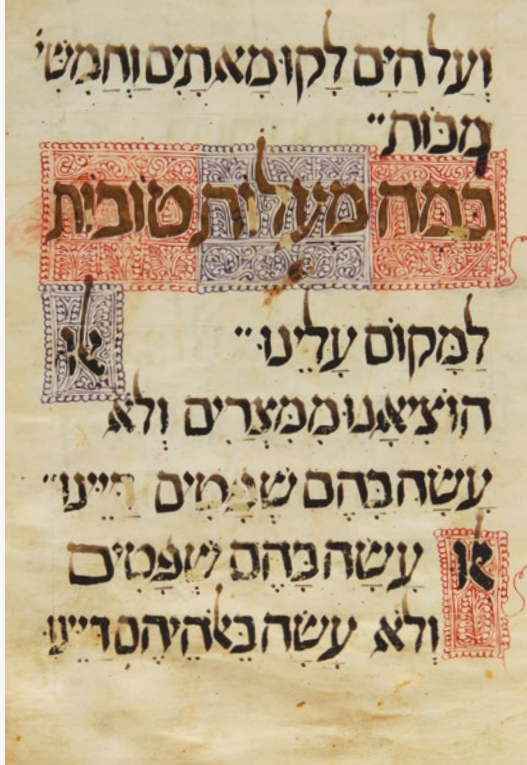 וְעַל הַיָּם לָקוּ מָאתַיִם וַחֲמִשִּׁי'
מַכּוֹת״
כַּמָּה מַעֲלוֹת טוֹבוֹת
לַמָּקוֹם עָלֵינוּ״ אלו
הוֹצִיאָנוּ מִמִּצְרַיִם וְלֹא
עָשָׂה בָּהֶם שְׁפָטִים דַּיֵּינוּ״
אלו עָשָׂה בָּהֶם שְׁפָטִים
וְלֹא עָשָׂה בֵּאלֹהֵיהֶם דַּיֵּינוּ